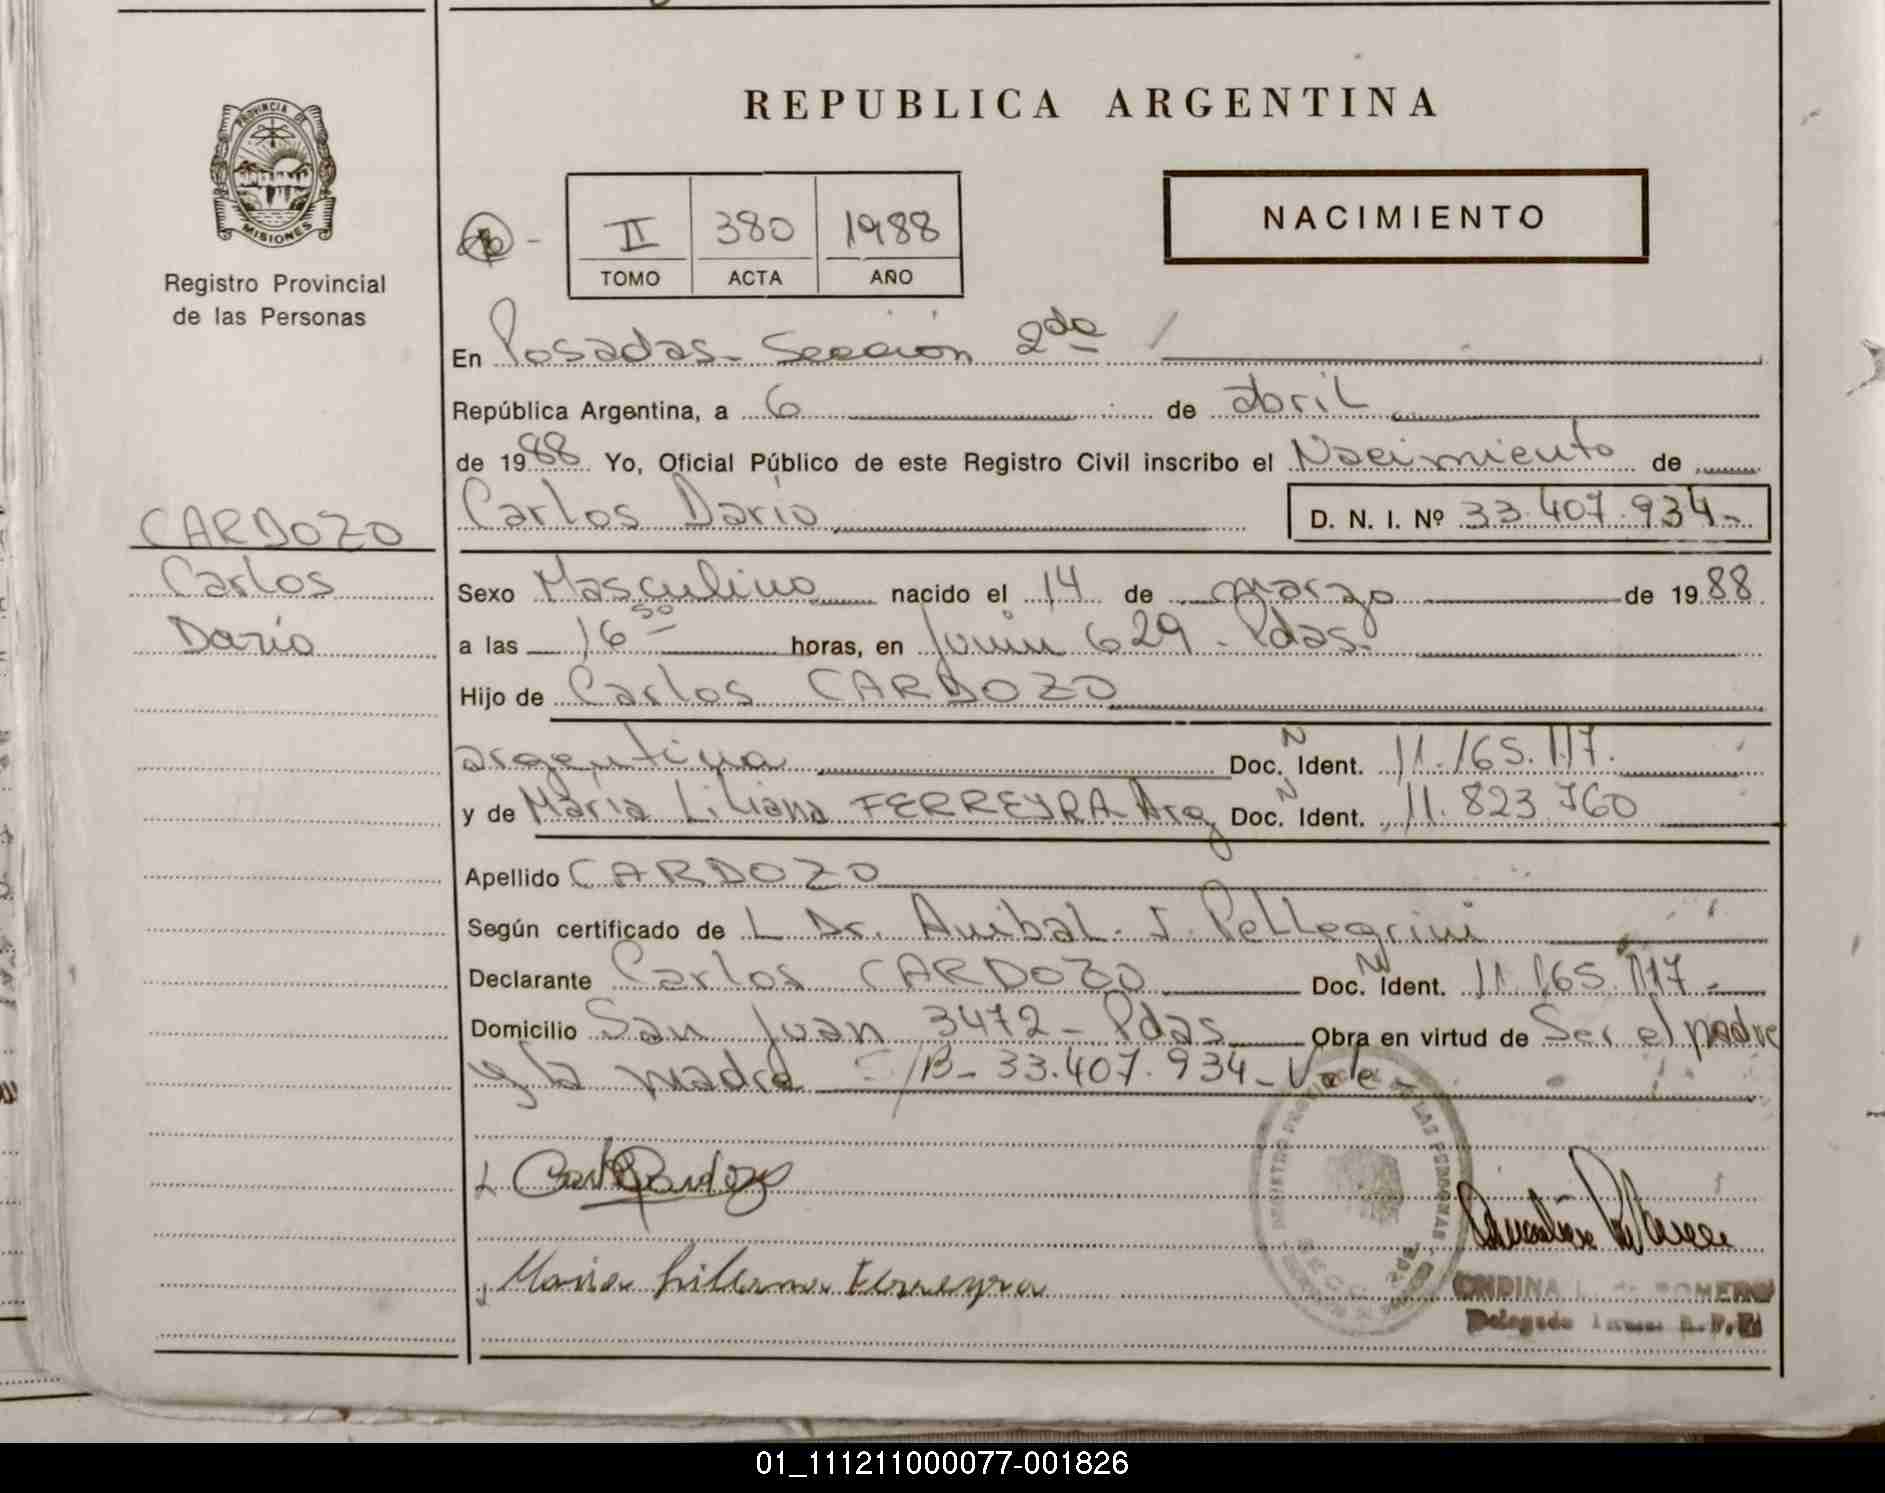 PROVINCIA DE
MISIONES
Registro Provincial
de las Personas
CARDOZO
Carlos
Darío
REPUBLICA ARGENTINA
II 380 1988
TOMO ACTA AÑO
NACIMIENTO
En Posadas - Sección 2da
República Argentina, a 6 de abril
de 1988 Yo, Oficial Público de este Registro Civil inscribo el Nacimiento de
Carlos Darío D. N. I. Nº 33.407.934-
Sexo Masculino nacido el 14 de marzo de 1988
a las 16 50 horas, en Junin 629 - Pdas.
Hijo de Carlos CARDOZO
argentina Doc. N Ident. 11.165.117.
y de María Liliana FERREYRA Arg Doc. N Ident. 11.823.760
Apellido CARDOZO
Según certificado de L Dr. Anibal J. Pellegrini
Declarante Carlos CARDOZO Doc. N Ident. 11.165.117-
Domicilio San Juan 3472 - Pdas Obra en virtud de Ser el padre
y la madre /B- 33.407.934- Vale
Maria Liliana Ferreyra
ONDINA L. de ROMERO
Delegada
01_111211000077-001826